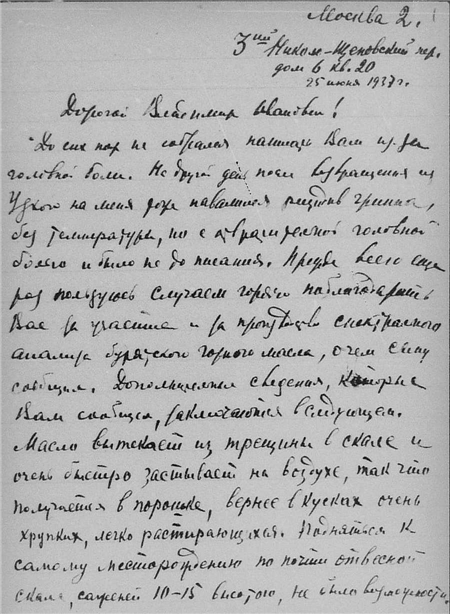 Москва 2.
3ий Никол-Щеповский пер.
дом 6 кв. 20
25 июня 1937 г.
Дорогой Владимир Иванович!
До сих пор не собрался написать Вам из-за
головной боли. На другой день после возвращения из
Узкого на меня навалился рецидив гриппа,
без температуры, но с отвратительной головной
болью и было не до писания. Прежде всего еще
раз пользуюсь случаем горячо поблагодарить
Вас за участие и за производство спектрального
анализа бурятского горного масла, о чем сыну
сообщил. Дополнительные сведения, которые
Вам сообщил, заключаются в следующем.
Масло вытекает из трещины в скале и
очень быстро застывает на воздухе, так что
получается в порошке, вернее в кусках очень
хрупких, легко растирающихся. Подняться к
самому месторождению по почти отвесной
скале, саженей 10-15 высотою, не было возможности.